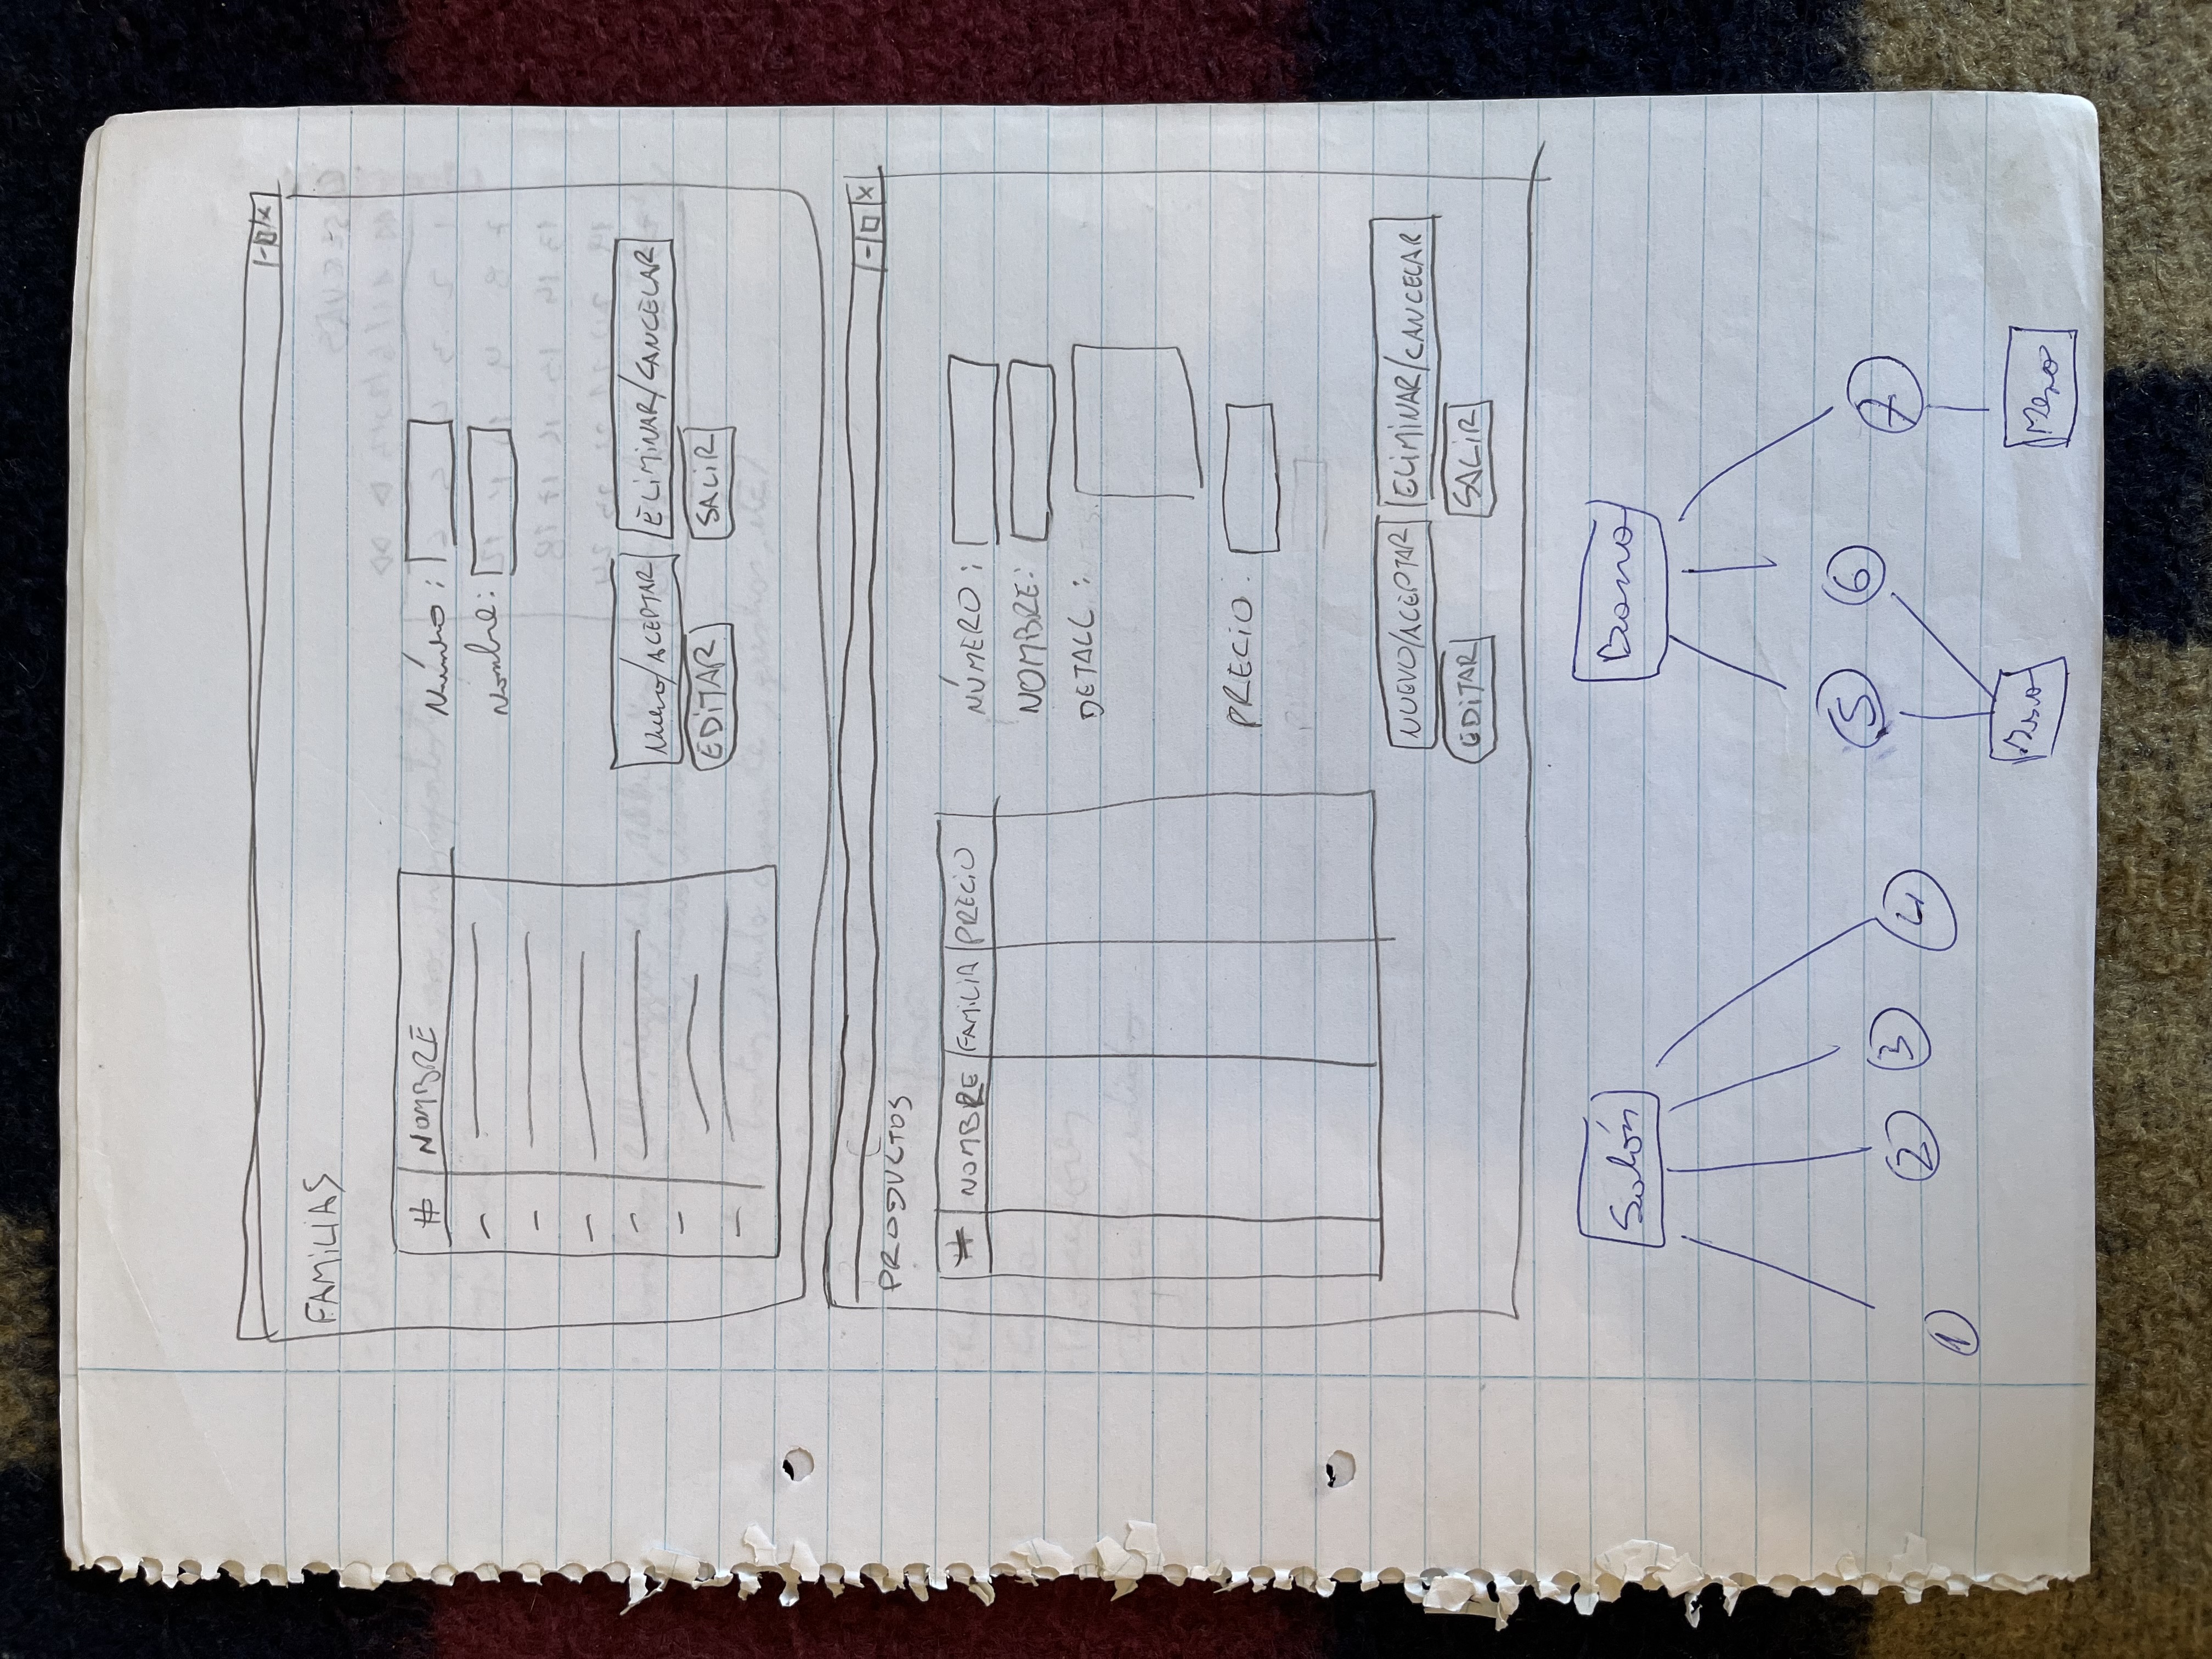 - □ x
FAMILIAS
# NOMBRE
Número:
Nombre:
Nuevo/ACEPTAR ELIMINAR/CANCELAR
EDITAR SALIR
- □ x
PRODUCTOS
# NOMBRE FAMILIA PRECIO
NÚMERO:
NOMBRE:
DETALL:
PRECIO:
NUEVO/ACEPTAR ELIMINAR/CANCELAR
EDITAR SALIR
Salón Barra
5 6 7
1 2 3 4
Mesa Mesa